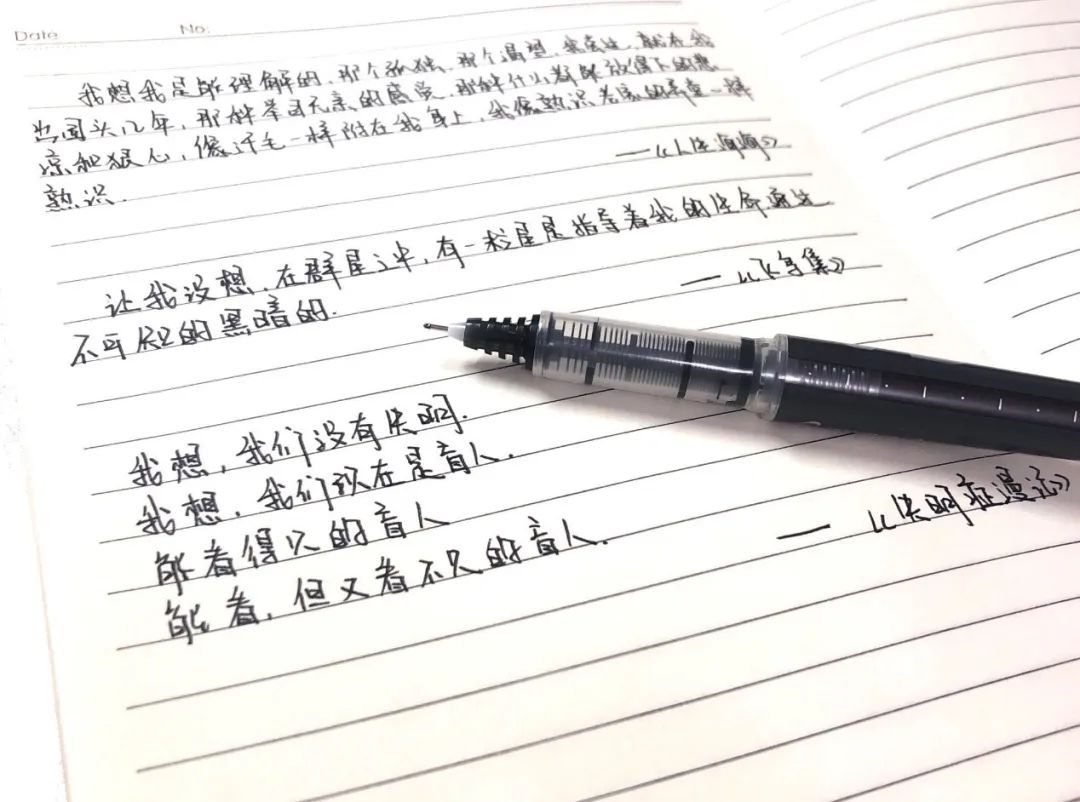 Date No:
我想我是能理解的，那个孤独、那个渴望，
出国头几年，那种举目无亲的感受，那种什么都能放得下的悲
凉和狠心，像汗毛一样附在我身上，我像熟识
熟识.
——《人生海海》
让我设想，在群星之中，有一粒星是指导着我的生命通过
不可知的黑暗的.
——《飞鸟集》
我想，我们没有失明.
我想，我们现在是盲人.
能看得见的盲人
能看，但又看不见的盲人.
——《失明症漫记》